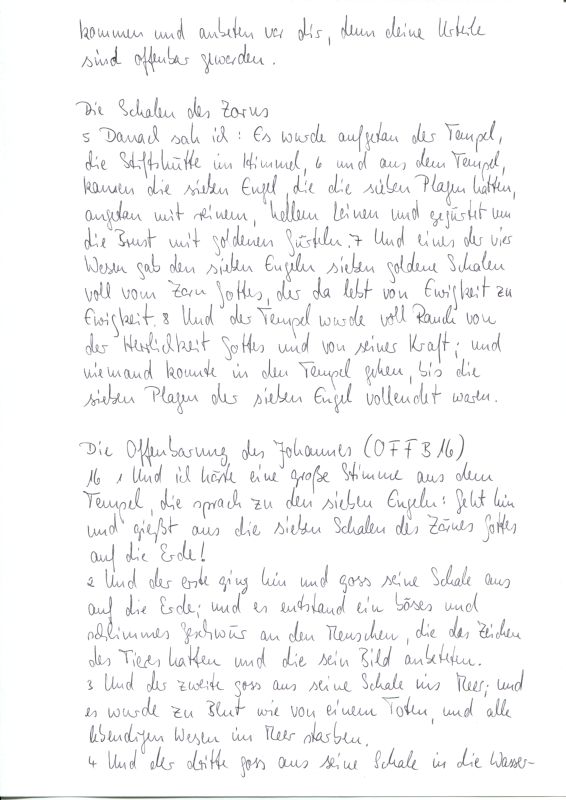 kommen und anbeten vor dir, denn deine Urteile
sind offenbar geworden.
Die Schalen des Zorns
5 Danach sah ich: Es wurde aufgetan der Tempel,
die Stiftshütte im Himmel, 6 und aus dem Tempel,
kamen die sieben Engel, die die sieben Plagen hatten,
angetan mit reinem, hellem Leinen und gegürtet um
die Brust mit goldenen Gürteln. 7 Und eines der vier
Wesen gab den sieben Engeln sieben goldene Schalen
voll vom Zorn Gottes, der da lebt von Ewigkeit zu
Ewigkeit. 8 Und der Tempel wurde voll Rauch von
der Herrlichkeit Gottes und von seiner Kraft; und
niemand konnte in den Tempel gehen, bis die
sieben Plagen der sieben Engel vollendet waren.
Die Offenbarung des Johannes (OFFB 16)
16 1 Und ich hörte eine große Stimme aus dem
Tempel, die sprach zu den sieben Engeln: Geht hin
und gießt aus die sieben Schalen des Zornes Gottes
auf die Erde!
2 Und der erste ging hin und goss seine Schale aus
auf die Erde; und es entstand ein böses und
schlimmes Geschwür an den Menschen, die das Zeichen
des Tieres hatten und die sein Bild anbeteten.
3 Und der zweite goss aus seine Schale ins Meer; und
es wurde zu Blut wie von einem Toten, und alle
lebendigen Wesen im Meer starben.
4 Und der dritte goss aus seine Schale in die Wasser-